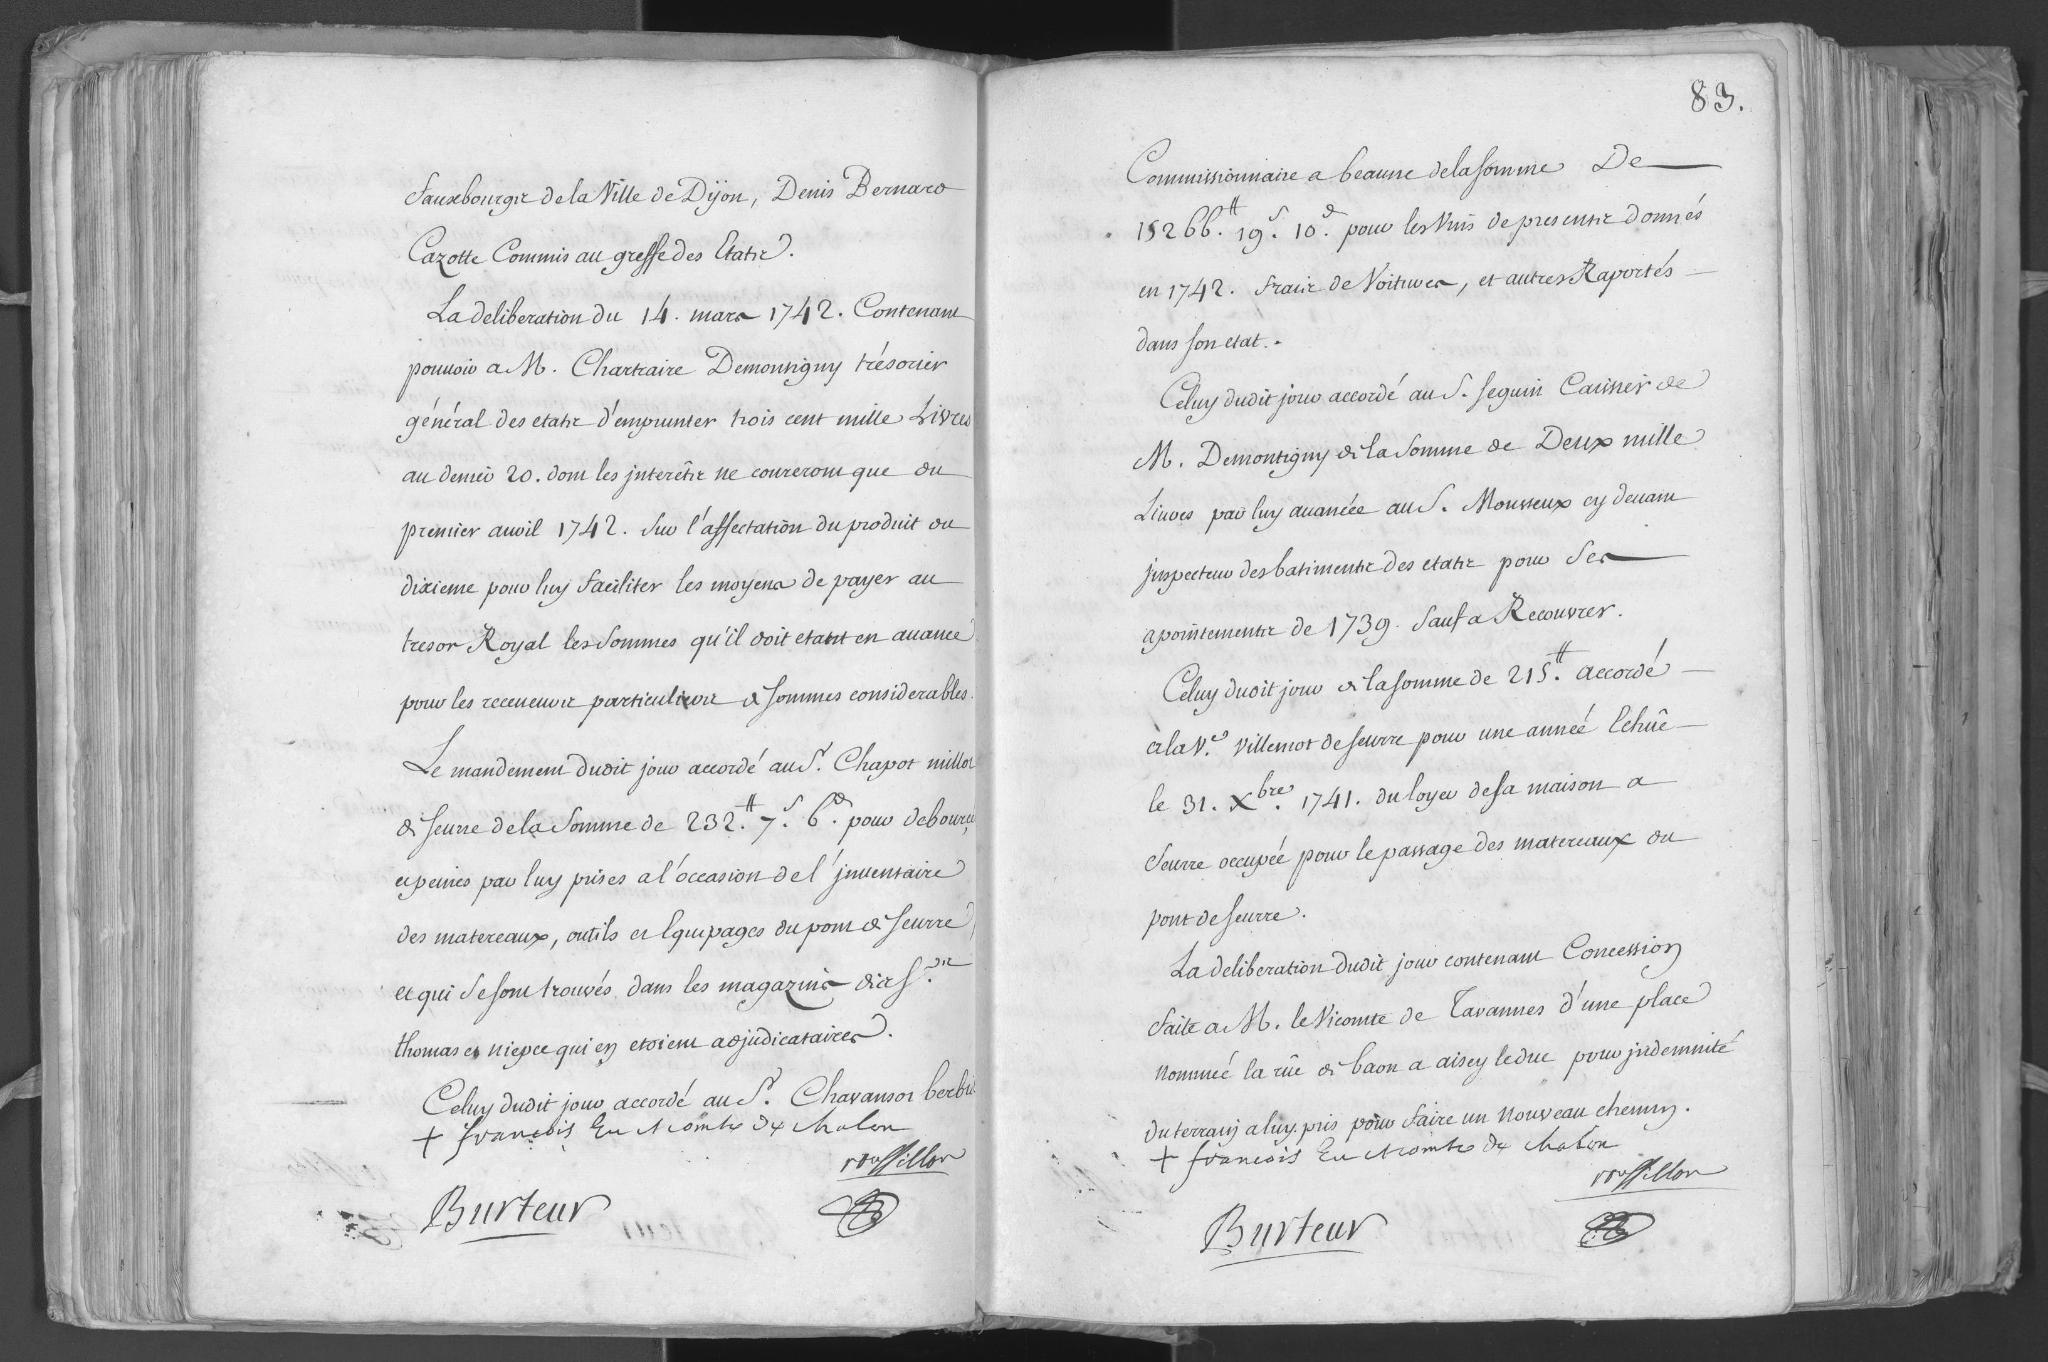 fauxbourgs de la Ville de Dijon, Denis Bernard
Cazotte Commis au greffe des Etats.
La deliberation du 14. mars 1742. Contenant
pouvoir a M. Chartraire Demontigny trésorier
général des etats d'emprunter trois cent mille Livres
au denier 20. dont les jnterêts ne coureront que du
premier avril 1742. sur l'affectation du produit du
dixieme pour luy faciliter les moyens de payer au
tresor Royal les sommes qu'il doit etant en avance
pour les receveurs particuliers de sommes considerables.
Le mandement dudit jour accordé au Sr. Chapot millot
de seurre de la somme de 232.# 7.s 6.d pour debourcé
et peines par luy prises a l'occasion de l'jnventaire
des matereaux, outils et Equipages du pont de seurre
et qui se sont trouvés dans les magazins des Srs.
thomas et niepce qui en etoient adjudicataires.
Celuy dudit jour accordé au Sr. Chavansot
+ françois Ev comte de chalon
rouffillon
Burteur
83.
Commissionnaire a beaune de la somme De
15266.# 19.s 10.d pour les vins de presents donnés
en 1742. frais de Voitures, et autres Raportés
dans son etat.
Celuy dudit jour accordé au S. seguin Caissier de
M. Demontigny de la somme de Deux mille
Livres par luy avancée au S. Mousseux cy devant
jnspecteur des batiments des etats pour ses
apointements de 1739. sauf a Recouvrer.
Celuy dudit jour de la somme de 215.# accordé
a la Ve. villemot de seurre pour une année Echuë
le 31. Xbre. 1741. du loyer de sa maison a
seurre occupée pour le passage des matereaux du
pont de seurre.
La deliberation dudit jour contenant Concession
faite a M. le Vicomte de Tavannes d'une place
nommée la rüe de baon a aisey le duc pour jndemnité
du terrain a luy pris pour faire un nouveau chemin.
+ françois Ev comte de chalon
rouffillon
Burteur